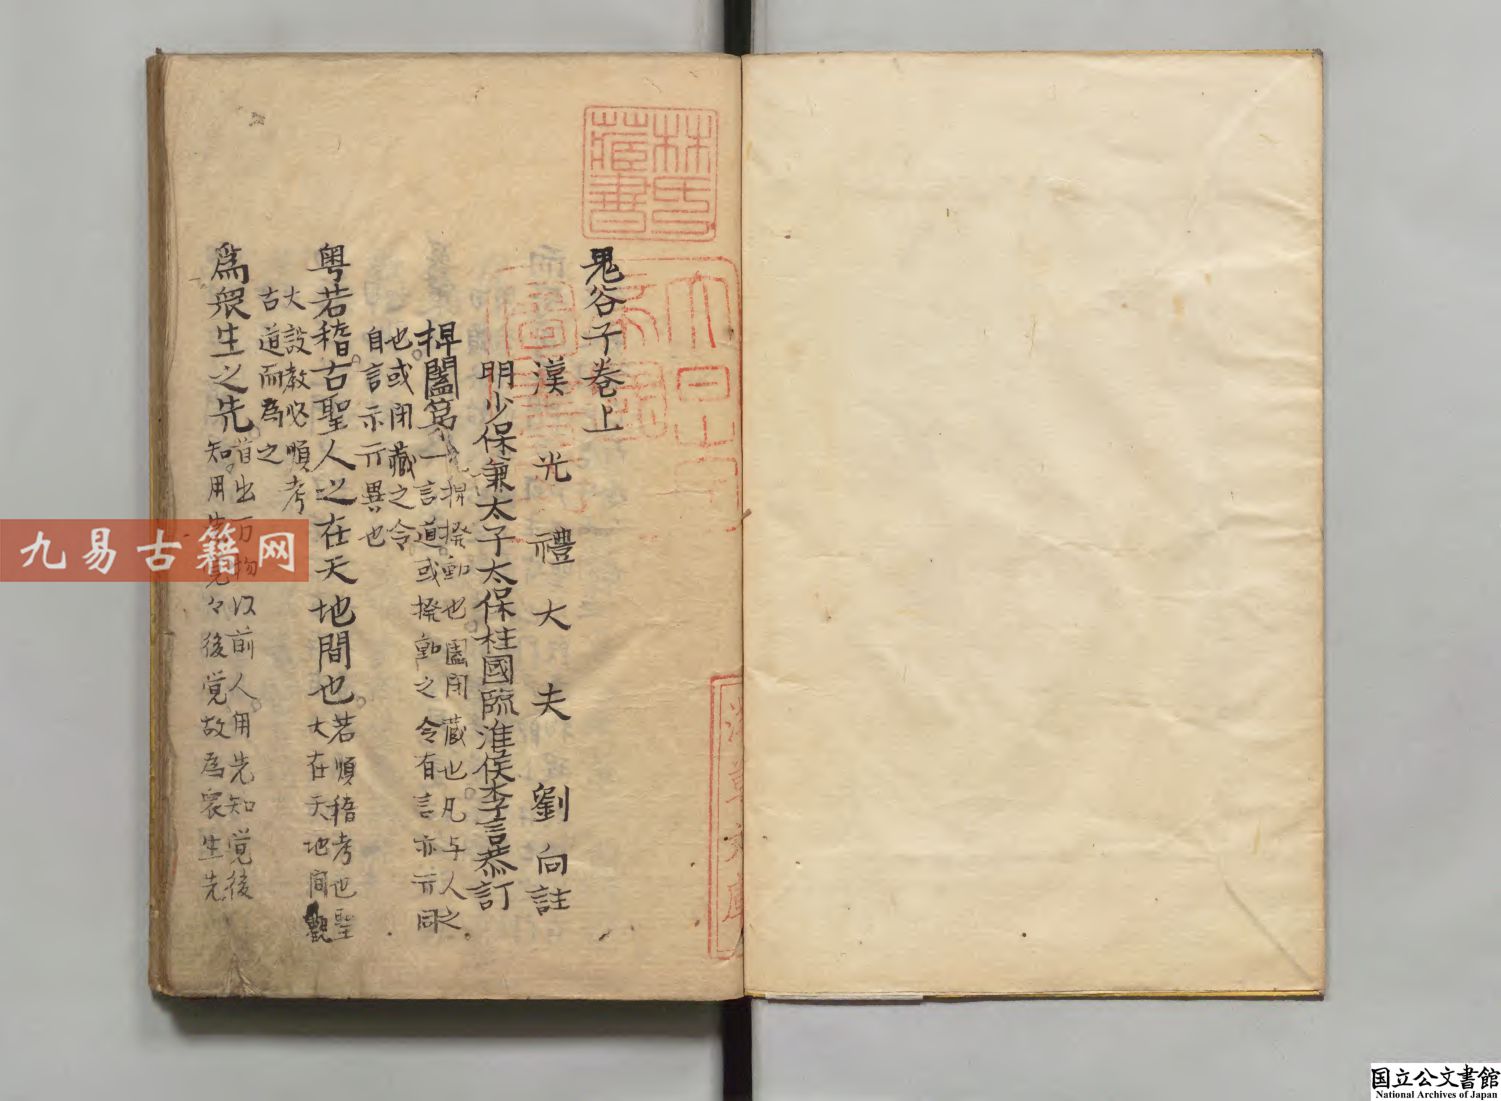 鬼谷子卷上
漢光禮大夫劉向註
明少保兼太子太保柱國臨淮侯李言恭訂
捭闔第一
捭撥動也闔閉藏也凡与人之
言道或撥動之令有言亦示同
也或闭藏之令
自言示示異也
粤若稽古聖人之在天地間也
若順稽考也聖
大在天地間觀
大設教必順考
古道而為之
為衆生之先
首出万物以前人用先知覚後
知用先覚々後覚故為衆生先
林氏藏書
淺草文庫
九易古籍网
国立公文書館
National Archives of Japan